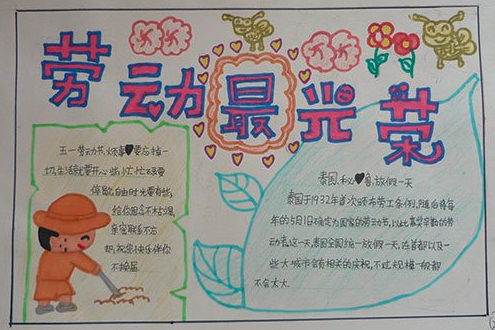 劳动最光荣
五一劳动节,烦事♥要忘掉一
切,生活就要开心些,忙忙碌要
停歇,自由时光要有些,
给你思念不枯竭,
亲密联系不
却,祝您快乐伴你
不换届
泰国,私♥雇,放假一天
泰国于1932年首次颁布劳工条例,随后将每
年的5月1日确定为国家的劳动节,以此嘉奖辛勤的劳
动者这一天,泰国全国统一放假一天,在首都以及一
些大城市会有相关的庆祝,不过规模一般都
不会太大.